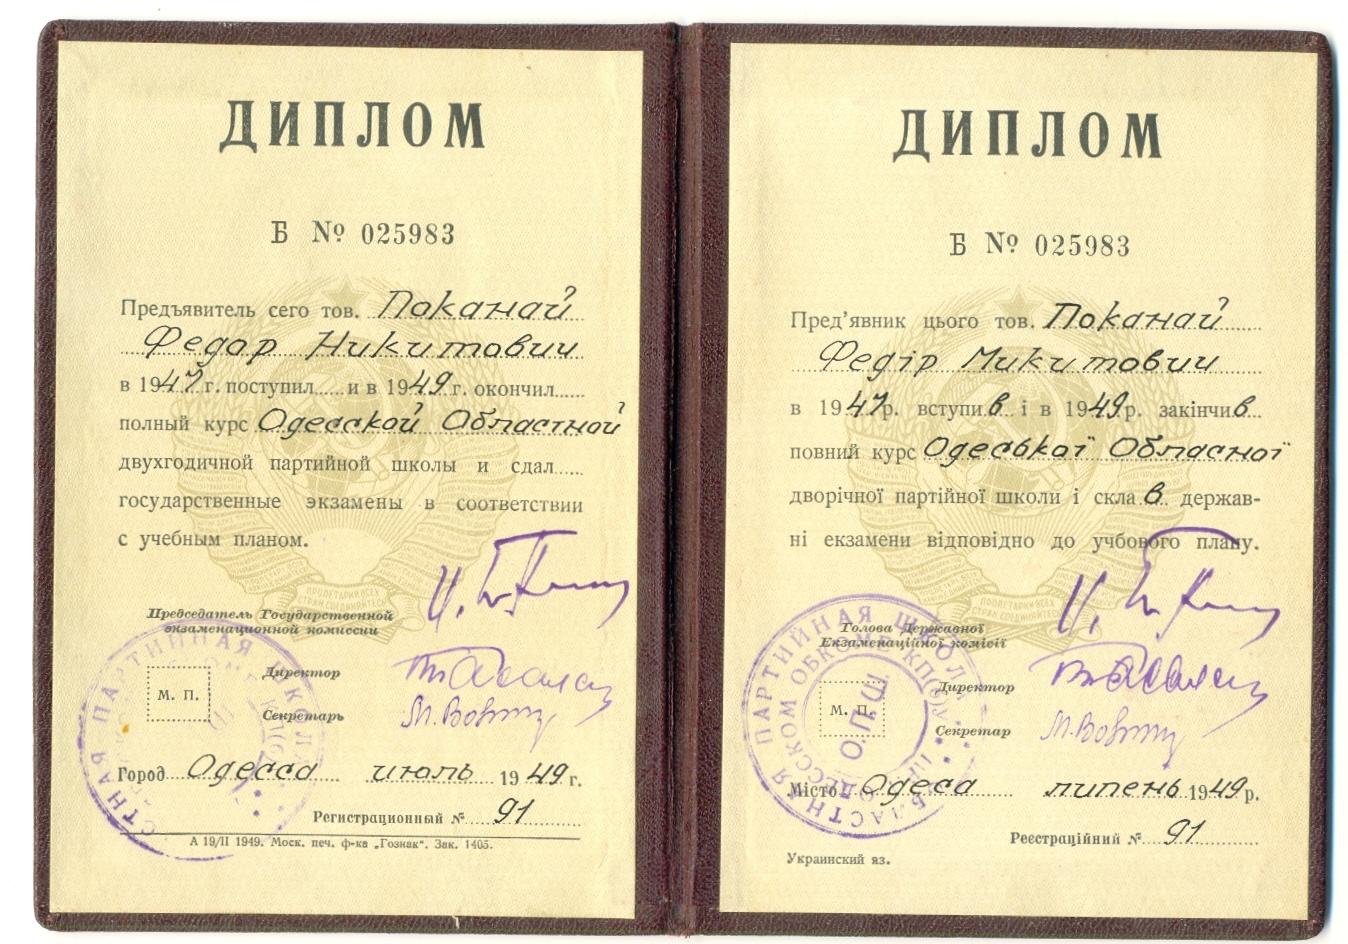 ДИПЛОМ
Б № 025983
Предъявитель сего тов. Поканай
Федор Никитович
в 1947 г. поступил и в 1949 г. окончил
полный курс Одесской Областной
двухгодичной партийной школы и сдал
государственные экзамены в соответствии
с учебным планом.
Председатель Государственной
экзаменационной комиссии
Директор
М. П.
Секретарь
Город Одесса июль 1949 г.
Регистрационный № 91
А 19/II 1949. Моск. печ. ф-ка „Гознак“. Зак. 1405.
СТНАЯ ПАРТИЙНАЯ ШКОЛ
ДИПЛОМ
Б № 025983
Пред'явник цього тов. Поканай
Федір Микитович
в 1947 р. вступив і в 1949 р. закінчив
повний курс Одеської Обласної
дворічної партійної школи і склав держав-
ні екзамени відповідно до учбового плану.
ПРОЛЕТАРИИ ВСЕХ
Голова Державної
Екзаменаційної комісії
Директор
М. П.
Секретар
Місто Одеса липень 1949 р.
Реєстраційний № 91
Украинский яз.
ОБЛАСТНАЯ ПАРТИЙНАЯ ШКОЛА
ПРИ ОДЕССКОМ ОБКОМЕ КП(б)У
О.П.Ш.